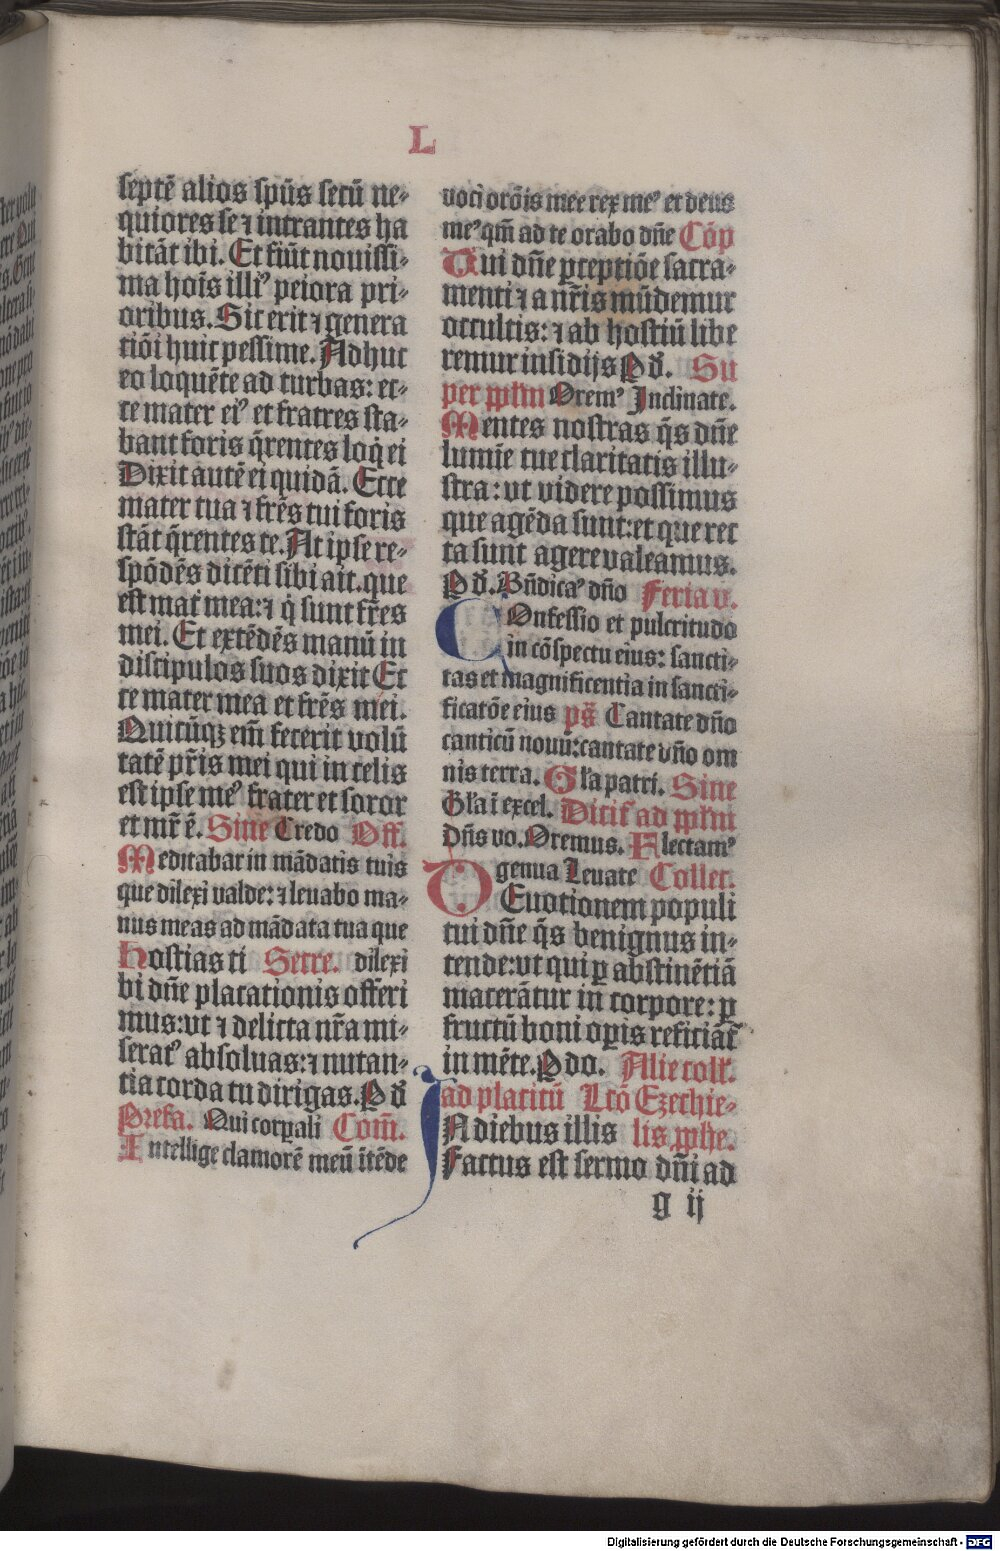 L
septē alios spūs secū ne⸗
quiores se ⁊ intrantes ha
bitāt ibi. Et fiūt nouissi⸗
ma hoīs illiꝰ peiora pri⸗
oribus. Sic erit ⁊ genera
tiōi huic pessime. Adhuc
eo loquēte ad turbas: ec⸗
ce mater eiꝰ et fratres sta⸗
bant foris q̄rentes loq̄ ei
Dixit autē ei quidā. Ecce
mater tua ⁊ frēs tui foris
stāt q̄rentes te. At ipse re⸗
spōdēs dicēti sibi ait. que
est mat̄ mea: ⁊ q̄ sunt fr̄es
mei. Et extēdēs manū in
discipulos suos dixit Ec
ce mater mea et frēs mei.
Quicūqꝫ em̄ fecerit volū
tatē pr̄is mei qui in celis
est ipse meꝰ frater et soror
et mr̄ ē. Sine Credo Off.
Meditabar in mādatis tuis
que dilexi valde: ⁊ leuabo ma⸗
nus meas ad mādata tua que
hostias ti Secre. dilexi
bi dn̄e placationis offeri
mus: vt ⁊ delicta nr̄a mi⸗
seratꝰ absoluas: ⁊ nutan⸗
tia corda tu dirigas. P dn̄
Prefa. Qui corꝑali Com̄.
Intellige clamorē meū ītēde
voci orōis mee rex meꝰ et deus
meꝰ qm̄ ad te orabo dn̄e Cōp
Tui dn̄e ꝑceptiōe sacra⸗
menti ⁊ a nr̄is mūdemur
occultis: ⁊ ab hostiū libe
remur insidijs P dn̄. Su
per pplm Oremꝰ Inclinate.
Mentes nostras q̄s dn̄e
lumīe tue claritatis illu⸗
stra: vt videre possimus
que agēda sunt: et que rec
ta sunt agere valeamus.
P dn̄. Bn̄dicaꝰ dn̄o Feria v.
Confessio et pulcritudo
in cōspectu eius: sancti⸗
tas et magnificentia in sancti⸗
ficatōe eius ps̄ Cantate dn̄o
canticū nouū: cantate dn̄o om
nis terra. Gl̄a patri. Sine
Gl̄a ī excel. Dicit̄ ad pplm
Dn̄s vo. Oremus. Flectamꝰ
genua Leuate Collec.
DEuotionem populi
tui dn̄e q̄s benignus in⸗
tende: vt qui ꝑ abstinētiā
macerātur in corpore: ꝑ
fructū boni oꝑis reficiāt̄
in mēte. P do. Alie coll̄.
ad placitū Lcō Ezechie⸗
IN diebus illis lis pphe.
Factus est sermo dn̄i ad
g ij
Digitalisierung gefördert durch die Deutsche Forschungsgemeinschaft - DFG